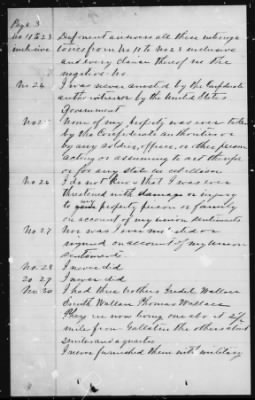 Page 3
No 11 to 23 Deponent answers all these interroga
inclusive tories from No 11 to No 23 inclusive
and every clause thereof in the
negative No
No 24 I was never arrested by the Confederate
authorities nor by the United States
Government
No 25 None of my property was ever taken
by the Confederate authorities or
by any soldier, officer, or other person
acting or assuming to act therefor
or for any state in rebellion
No 26 I do not know that I was ever
threatened with damage or injury
to my property person or family
on account of my union sentiments
No 27 Nor was I ever
on account of my union
sentiments
No. 28 I never did
No 29 I never did
No 30 I had three brothers Wallace
Wallace Thomas Wallace
They are now living one about 2½
mile from Gallatin the others about
miles and a quarter
I never furnished them with military